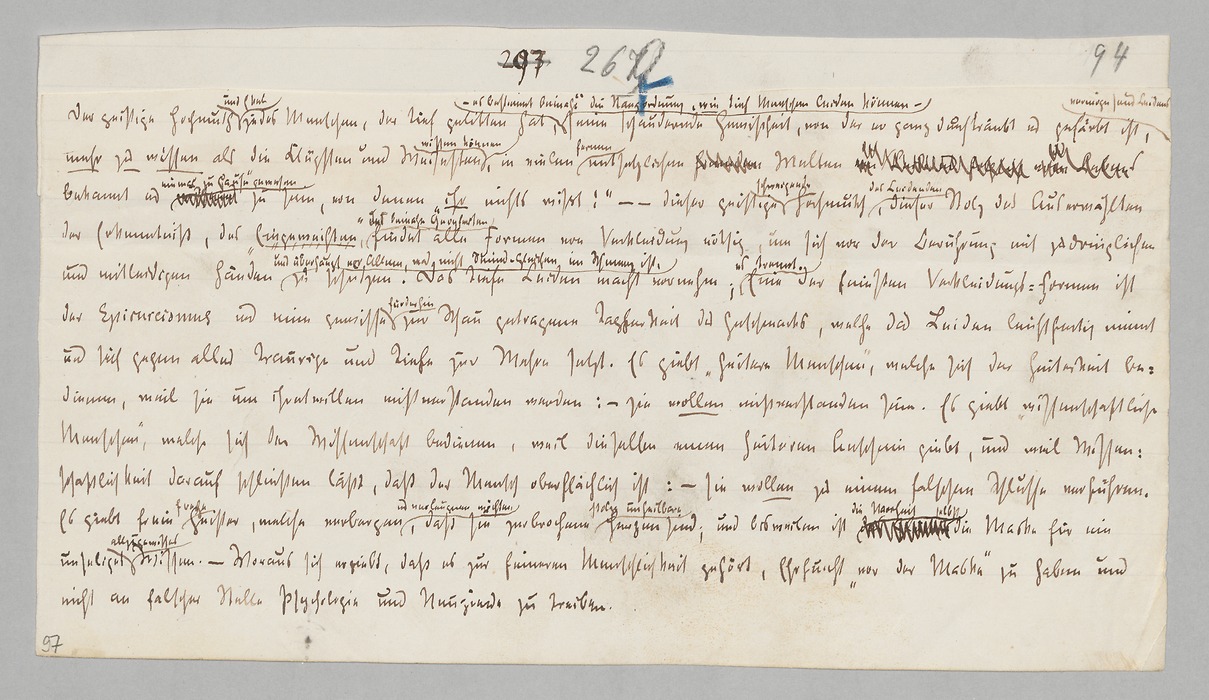 297 267 94
und Ekel — es bestimmt beinahe die Rangordnung, wie tief Menschen leiden können — vermöge seines Leidens
Der geistige Hochmuth jedes Menschen, der tief gelitten hat, seine schaudernde Gewißheit, von der er ganz durchtränkt und gefärbt ist,
wissen können fernen
mehr zu wissen als die Klügsten und Weisesten, in vielen entsetzlichen Welten
einmal „zu Hause“ gewesen schweigende des Leidenden
bekannt und zu sein, von denen „ihr nichts wißt!“ — — dieser geistige Hochmuth, dieser Stolz des Auserwählten
des beinahe Geopferten
der Erkenntniß, des „Eingeweihten“, findet alle Formen von Verkleidung nöthig, um sich vor der Berührung mit zudringlichen
und überhaupt vor Allem, was nicht Seines-gleichen im Schmerz ist. es trennt.
und mitleidigen Händen zu schützen. Das tiefe Leiden macht vornehm; Eine der feinsten Verkleidungs-Formen ist
fürderhin
der Epicureismus und eine gewisse zur Schau getragene Tapferkeit des Geschmacks, welche das Leiden leichtfertig nimmt
und sich gegen alles Traurige und Tiefe zur Wehre setzt. Es giebt „heitere Menschen“, welche sich der Heiterkeit be-
dienen, weil sie um ihretwillen mißverstanden werden: — sie wollen mißverstanden sein. Es giebt „wissenschaftliche
Menschen“, welche sich der Wissenschaft bedienen, weil dieselbe einen heiteren Anschein giebt, und weil Wissen-
schaftlichkeit darauf schließen läßt, daß der Mensch oberflächlich ist: — sie wollen zu einem falschen Schlusse verführen.
freche und verleugnen möchten stolze unheilbare die Narrheit selbst
Es giebt freie Geister, welche verbergen, daß sie zerbrochene Herzen sind; und bisweilen ist die Maske für ein
allzugewisses
unseliges Wissen. — Woraus sich ergiebt, daß es zur feineren Menschlichkeit gehört, Ehrfurcht „vor der Maske“ zu haben und
nicht an falscher Stelle Psychologie und Neugierde zu treiben.
97